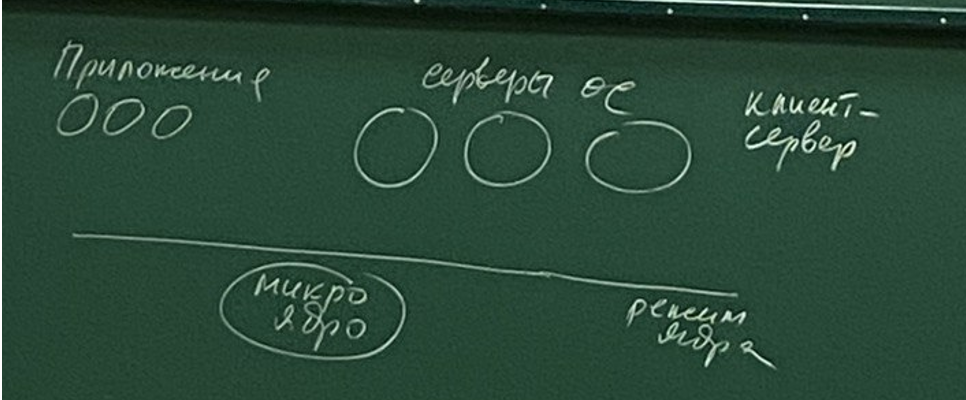 Приложения
серверы ОС
клиент-
сервер
микро
ядро
режим
ядра